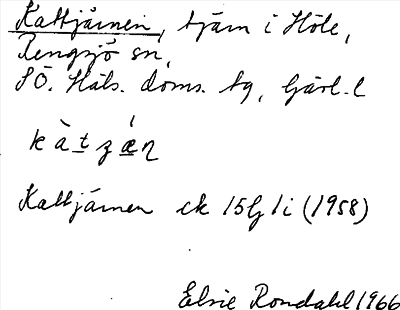 Kattjärnen, tjärn i Höle,
Rengsjö sn,
SÖ. Häls. doms. tg, Gävl. l
kàtzǽn
Kattjärnen ek 15G1i (1958)
Elsie Rondahl 1966